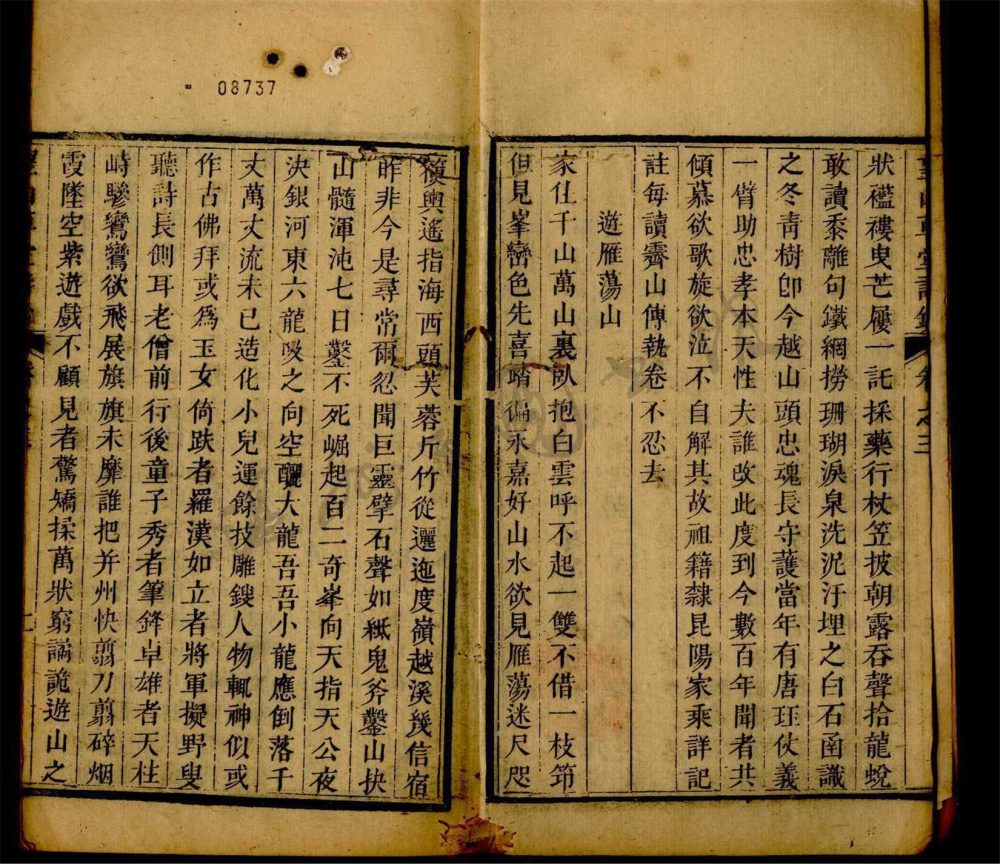 08737
卷之三
狀襤褸曳芒屨一託採藥行杖笠披朝露吞聲拾龍蛻
敢讀黍離句鐵網撈珊瑚淚泉洗沉汙埋之白石函識
之冬靑樹卽今越山頭忠魂長守護當年有唐玨仗義
一臂助忠孝本天性夫誰改此度到今數百年聞者共
傾慕欲歌旋欲泣不自解其故祖籍隸昆陽家乘詳記
註每讀霽山傳執卷不忍去
遊雁蕩山
家住千山萬山裏臥抱白雲呼不起一雙不借一枝筇
但見峯巒色先喜踏徧永嘉好山水欲見雁蕩迷尺咫
輿遙指海西頭芙蓉斤竹從邐迤度嶺越溪幾信宿
昨非今是尋常爾忽聞巨靈擘石聲如紙鬼斧鑿山抉
山髓渾沌七日鑿不死崛起百二奇峯向天指天公夜
決銀河東六龍吸之向空釃大龍吾吾小龍應倒落千
丈萬丈流未已造化小兒運餘技雕鎪人物輒神似或
作古佛拜或爲玉女倚趺者羅漢如立者將軍擬野叟
聽詩長側耳老僧前行後童子秀者筆鋒卓雄者天柱
峙驂鸞鸞欲飛展旗旗未靡誰把并州快翦刀翦碎烟
霞墜空紫遊戲不顧見者驚矯揉萬狀窮譎詭遊山之